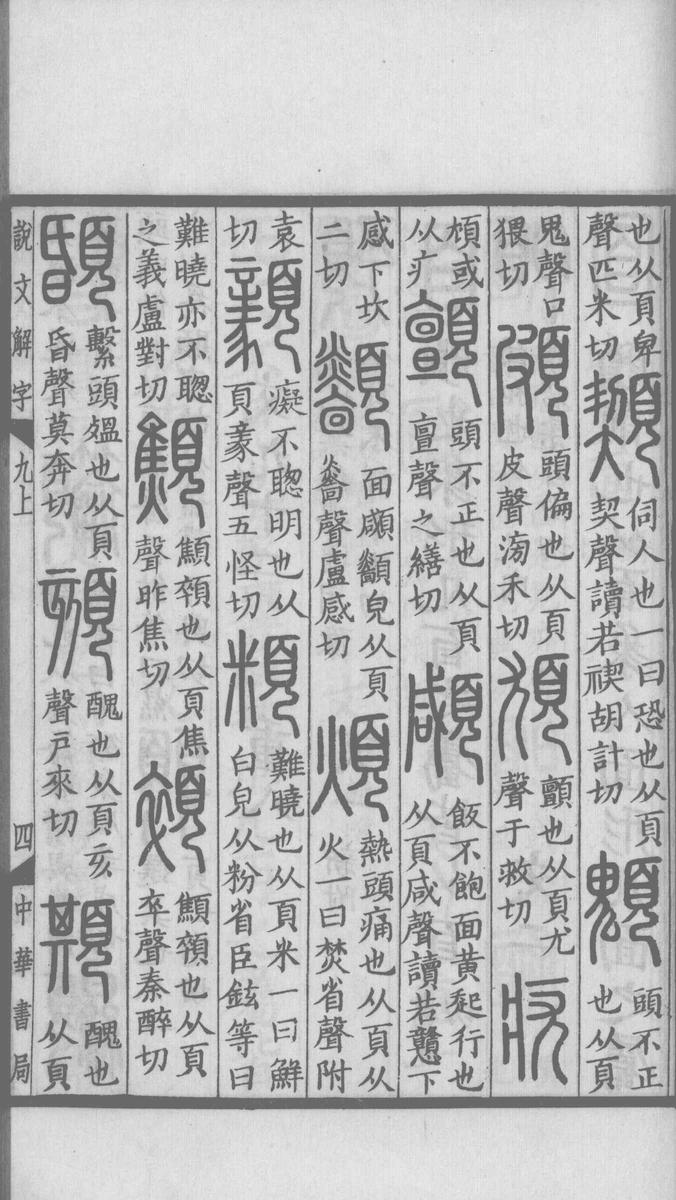 也从頁卑聲匹米切 𩓥 伺人也一曰恐也从頁契聲讀若禊胡計切 䫥 頭不正也从頁
鬼聲口猥切 頗 頭偏也从頁皮聲滂禾切 頄 顫也从頁尤聲于救切 疣
頄或从疒 顫 頭不正也从頁亶聲之繕切 顑 飯不飽面黃起行也从頁咸聲讀若戇下
感下坎二切 面顑䫲皃从頁𤐫聲盧感切 煩 熱頭痛也从頁从火一曰焚省聲附
袁切 顡 癡不聰明也从頁䝘聲五怪切 頪 難曉也从頁米一曰鮮白皃从粉省臣鉉等曰
難曉亦不聰之義盧對切 顦 顦顇也从頁焦聲昨焦切 顇 顦顇也从頁卒聲秦醉切
頭殟也从頁昏聲莫奔切 頦 醜也从頁亥聲戶來切 䫏 醜也从頁
說文解字 九上 四 中華書局